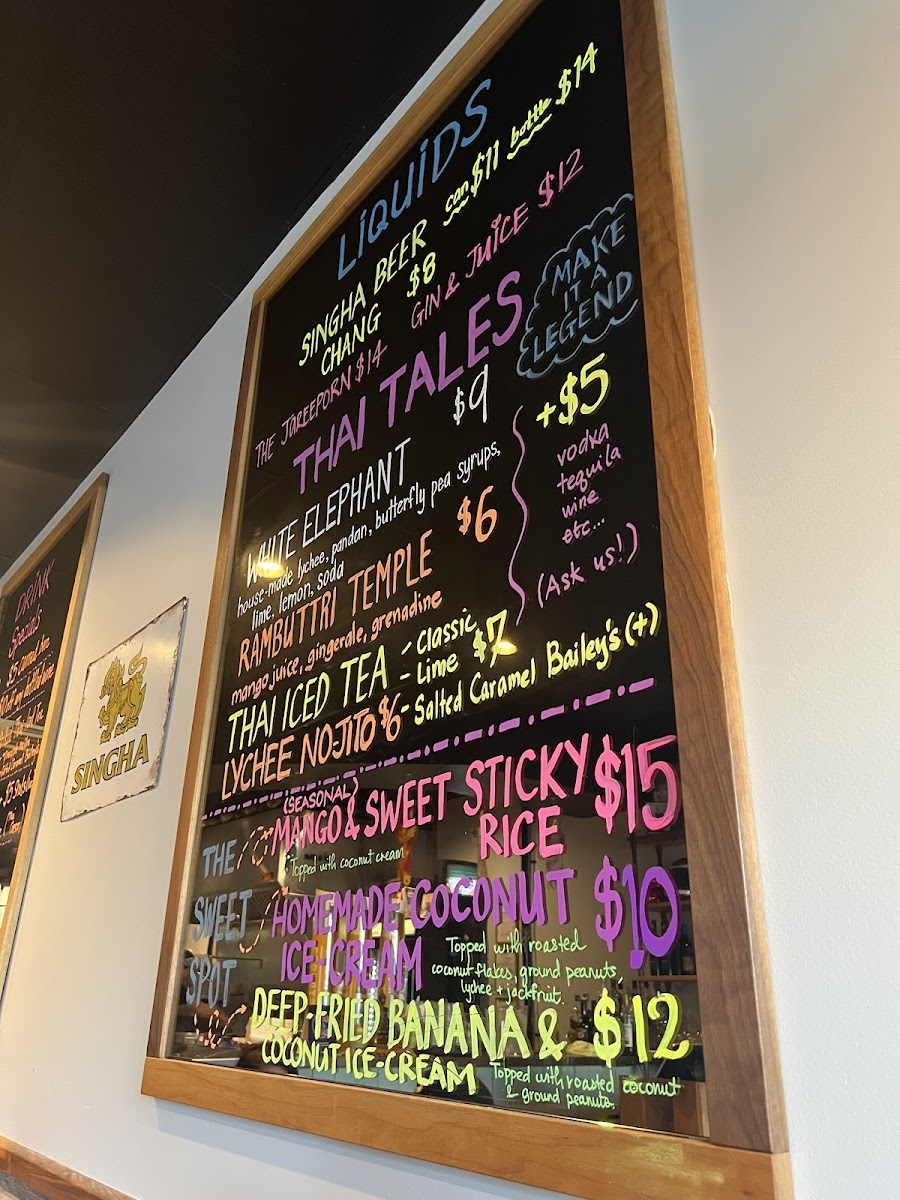 LiQUiDS
SINGHA BEER can $11 bottle $14
CHANG $8
THE JAREEPORN $14 GIN & JUICE $12
THAI TALES
MAKE
IT A
LEGEND
+$5
vodka
tequila
wine
etc...
(Ask us!)
WHITE ELEPHANT $9
house-made lychee, pandan, butterfly pea syrups,
lime, lemon, soda
RAMBUTTRI TEMPLE $6
mango juice, gingerale, grenadine
THAI ICED TEA $7
- Classic
- Lime
- Salted Caramel Bailey's (+)
LYCHEE NO-JITO $6
THE
SWEET
SPOT
(SEASONAL)
MANGO & SWEET STICKY $15
RICE
Topped with coconut cream
HOMEMADE COCONUT $10
ICE-CREAM
Topped with roasted
coconut flakes, ground peanuts,
lychee + jackfruit.
DEEP-FRIED BANANA & $12
COCONUT ICE-CREAM
Topped with roasted coconut
& ground peanuts.
SINGHA
DRINK
Specials